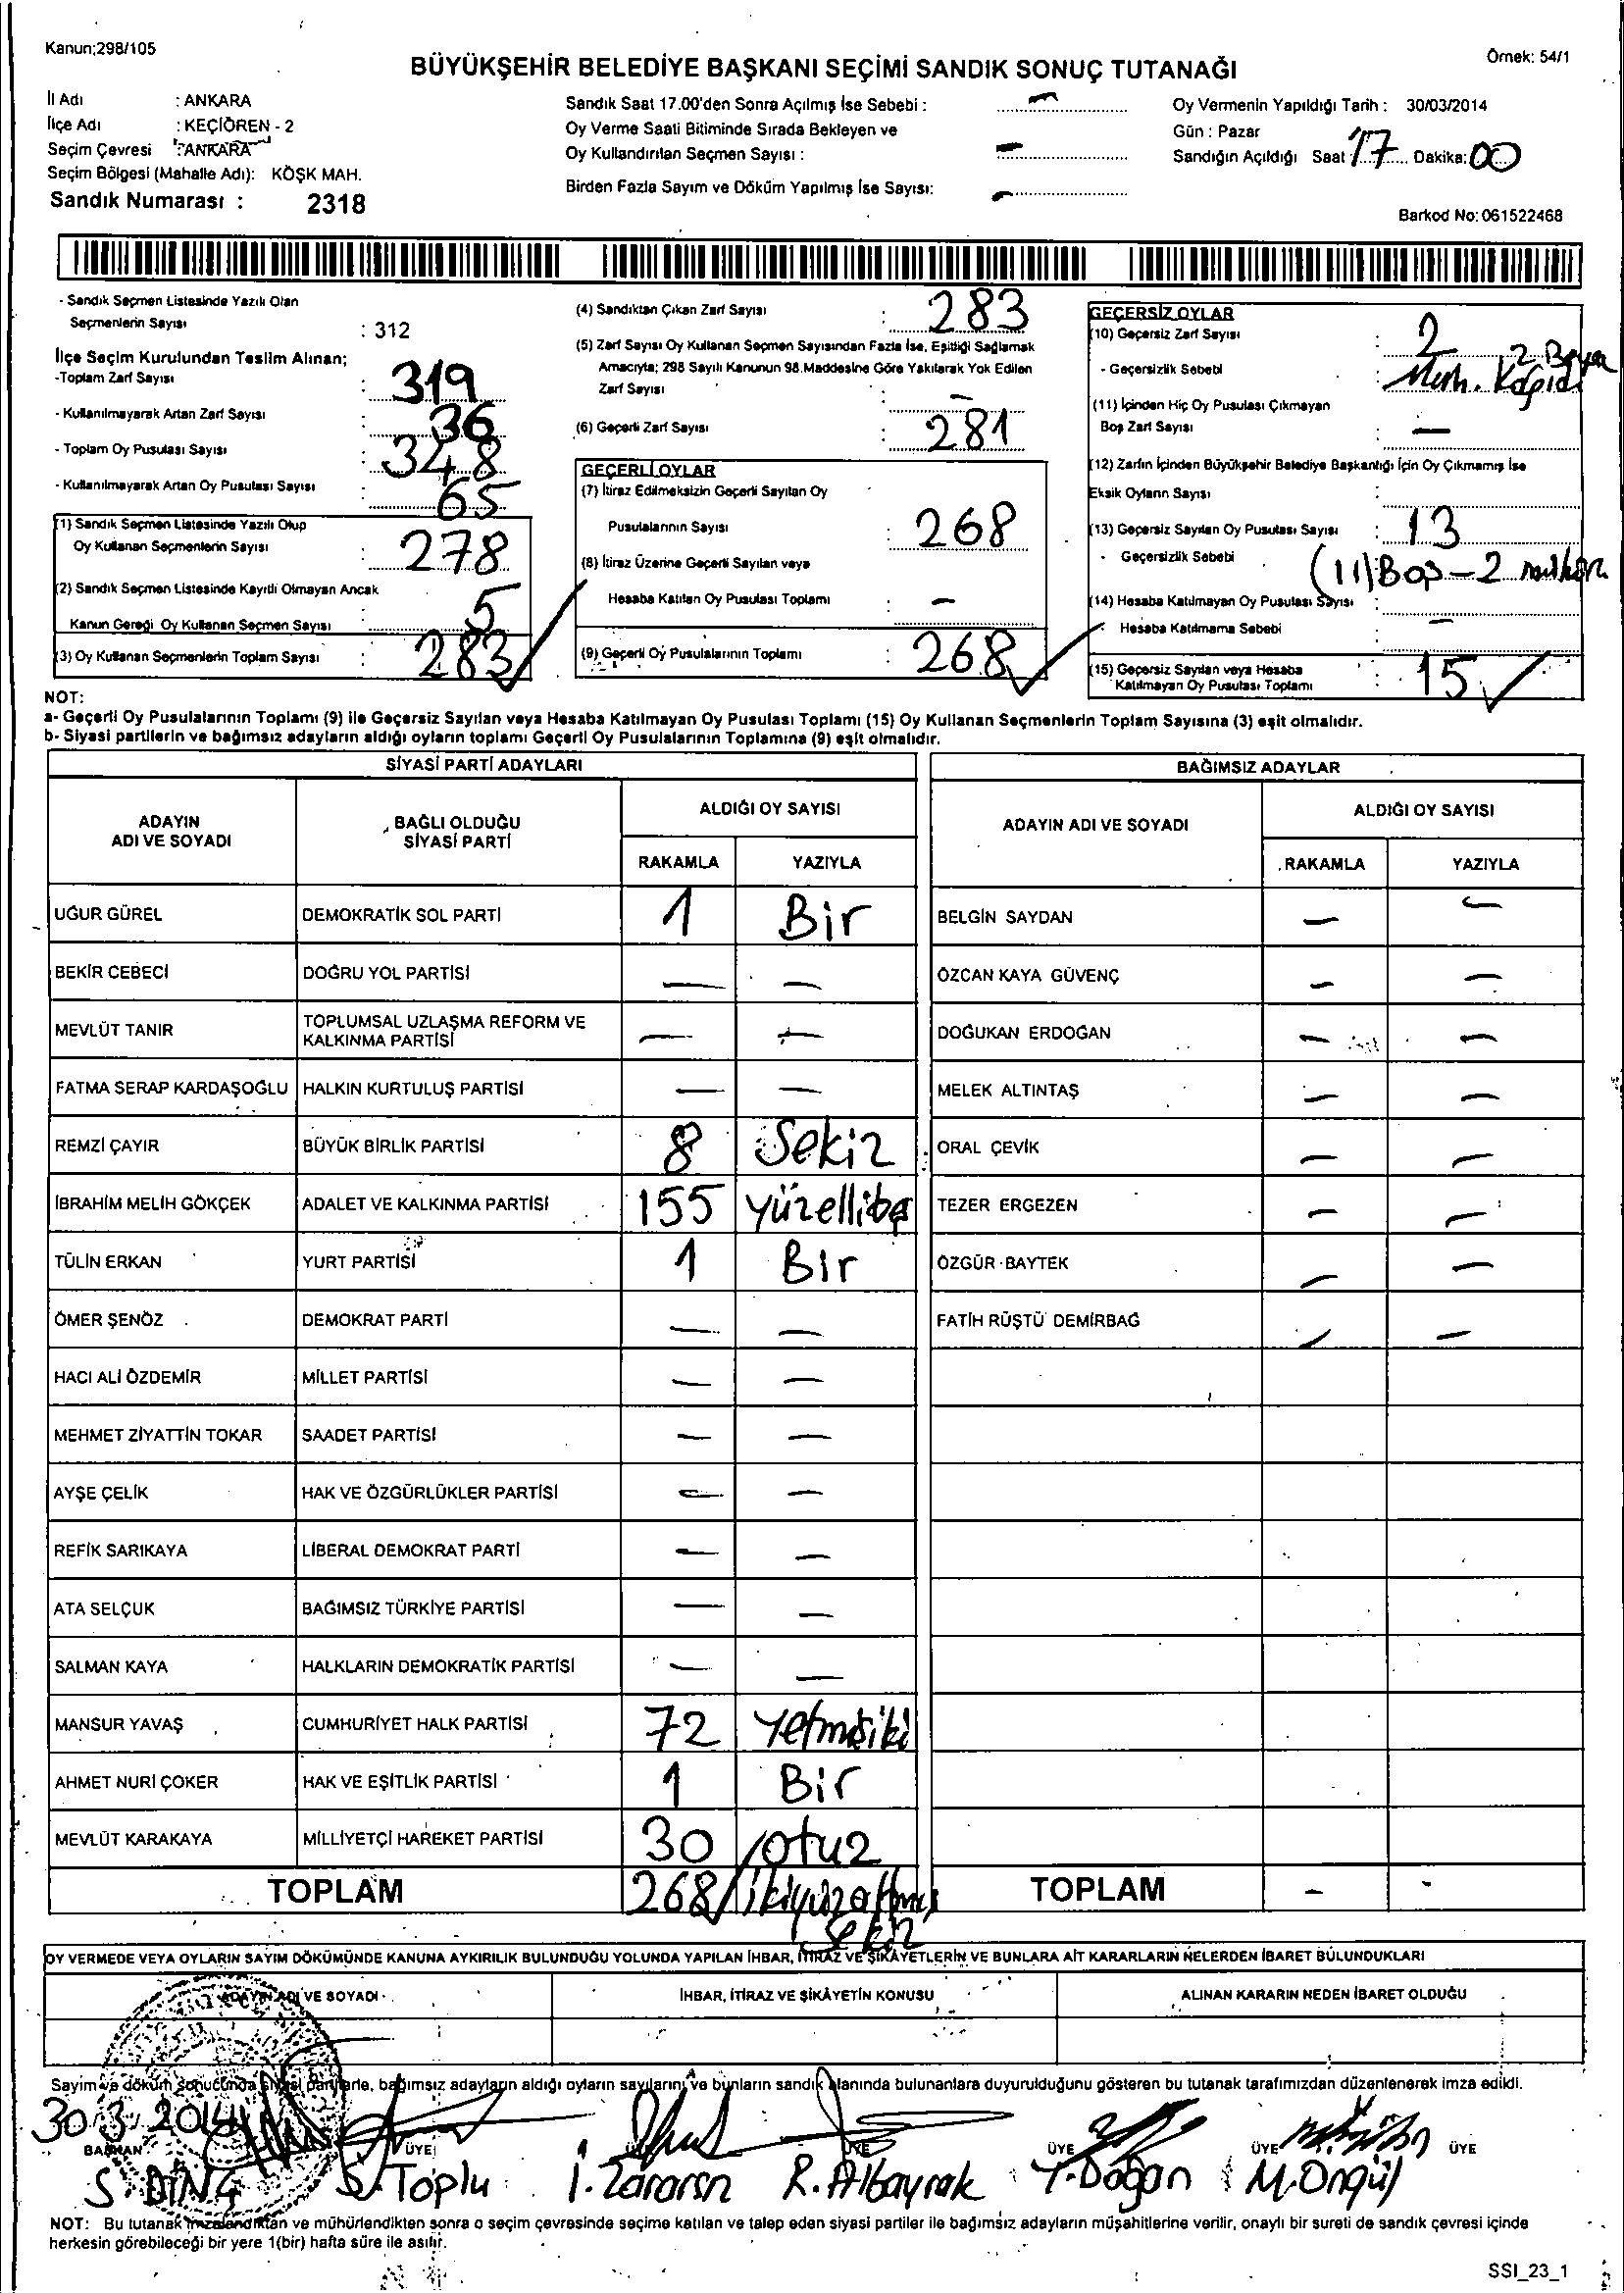 Kanun;298/105
Örnek: 54/1
BÜYÜKŞEHİR BELEDİYE BAŞKANI SEÇİMİ SANDIK SONUÇ TUTANAĞI
İl Adı : ANKARA
İlçe Adı : KEÇİÖREN - 2
Seçim Çevresi : ANKARA
Seçim Bölgesi (Mahalle Adı): KÖŞK MAH.
Sandık Numarası : 2318
Sandık Saat 17.00'den Sonra Açılmış İse Sebebi : —
Oy Verme Saati Bitiminde Sırada Bekleyen ve
Oy Kullandırılan Seçmen Sayısı : —
Birden Fazla Sayım ve Döküm Yapılmış İse Sayısı: —
Oy Vermenin Yapıldığı Tarih : 30/03/2014
Gün : Pazar
Sandığın Açıldığı Saat 17 Dakika: 00
Barkod No: 061522468
- Sandık Seçmen Listesinde Yazılı Olan
Seçmenlerin Sayısı : 312
İlçe Seçim Kurulundan Teslim Alınan;
-Toplam Zarf Sayısı : 319
- Kullanılmayarak Artan Zarf Sayısı : 36
- Toplam Oy Pusulası Sayısı : 348
- Kullanılmayarak Artan Oy Pusulası Sayısı : 65
(1) Sandık Seçmen Listesinde Yazılı Olup
Oy Kullanan Seçmenlerin Sayısı : 278
(2) Sandık Seçmen Listesinde Kayıtlı Olmayan Ancak
Kanun Gereği Oy Kullanan Seçmen Sayısı : 5
(3) Oy Kullanan Seçmenlerin Toplam Sayısı : 283
(4) Sandıktan Çıkan Zarf Sayısı : 283
(5) Zarf Sayısı Oy Kullanan Seçmen Sayısından Fazla İse, Eşitliği Sağlamak
Amacıyla; 298 Sayılı Kanunun 98.Maddesine Göre Yakılarak Yok Edilen
Zarf Sayısı : —
(6) Geçerli Zarf Sayısı : 281
GEÇERLİ OYLAR
(7) İtiraz Edilmeksizin Geçerli Sayılan Oy
Pusulalarının Sayısı : 268
(8) İtiraz Üzerine Geçerli Sayılan veya
Hesaba Katılan Oy Pusulası Toplamı : —
(9) Geçerli Oy Pusulalarının Toplamı : 268
GEÇERSİZ OYLAR
(10) Geçersiz Zarf Sayısı : 2
- Geçersizlik Sebebi : 2
(11) İçinden Hiç Oy Pusulası Çıkmayan
Boş Zarf Sayısı : —
(12) Zarfın İçinden Büyükşehir Belediye Başkanlığı İçin Oy Çıkmamış İse
Eksik Oyların Sayısı :
(13) Geçersiz Sayılan Oy Pusulası Sayısı : 13
- Geçersizlik Sebebi (11) Boş – 2
(14) Hesaba Katılmayan Oy Pusulası Sayısı :
- Hesaba Katılmama Sebebi : —
(15) Geçersiz Sayılan veya Hesaba
Katılmayan Oy Pusulası Toplamı : 15
NOT:
a- Geçerli Oy Pusulalarının Toplamı (9) ile Geçersiz Sayılan veya Hesaba Katılmayan Oy Pusulası Toplamı (15) Oy Kullanan Seçmenlerin Toplam Sayısına (3) eşit olmalıdır.
b- Siyasi partilerin ve bağımsız adayların aldığı oyların toplamı Geçerli Oy Pusulalarının Toplamına (9) eşit olmalıdır.
SİYASİ PARTİ ADAYLARI
ADAYIN ADI VE SOYADI BAĞLI OLDUĞU SİYASİ PARTİ ALDIĞI OY SAYISI RAKAMLA YAZIYLA
UĞUR GÜREL DEMOKRATİK SOL PARTİ 1 Bir
BEKİR CEBECİ DOĞRU YOL PARTİSİ — —
MEVLÜT TANIR TOPLUMSAL UZLAŞMA REFORM VE KALKINMA PARTİSİ — —
FATMA SERAP KARDAŞOĞLU HALKIN KURTULUŞ PARTİSİ — —
REMZİ ÇAYIR BÜYÜK BİRLİK PARTİSİ 8 Sekiz
İBRAHİM MELİH GÖKÇEK ADALET VE KALKINMA PARTİSİ 155 yüzellibeş
TÜLİN ERKAN YURT PARTİSİ 1 Bir
ÖMER ŞENÖZ DEMOKRAT PARTİ — —
HACI ALİ ÖZDEMİR MİLLET PARTİSİ — —
MEHMET ZİYATTİN TOKAR SAADET PARTİSİ — —
AYŞE ÇELİK HAK VE ÖZGÜRLÜKLER PARTİSİ — —
REFİK SARIKAYA LİBERAL DEMOKRAT PARTİ — —
ATA SELÇUK BAĞIMSIZ TÜRKİYE PARTİSİ — —
SALMAN KAYA HALKLARIN DEMOKRATİK PARTİSİ — —
MANSUR YAVAŞ CUMHURİYET HALK PARTİSİ 72 Yetmişiki
AHMET NURİ ÇOKER HAK VE EŞİTLİK PARTİSİ 1 Bir
MEVLÜT KARAKAYA MİLLİYETÇİ HAREKET PARTİSİ 30 otuz
TOPLAM 268 / ikiyüzaltmış sekiz
BAĞIMSIZ ADAYLAR
ADAYIN ADI VE SOYADI ALDIĞI OY SAYISI RAKAMLA YAZIYLA
BELGİN SAYDAN — —
ÖZCAN KAYA GÜVENÇ — —
DOĞUKAN ERDOĞAN — —
MELEK ALTINTAŞ — —
ORAL ÇEVİK — —
TEZER ERGEZEN — —
ÖZGÜR BAYTEK — —
FATİH RÜŞTÜ DEMİRBAĞ — —
TOPLAM — -
OY VERMEDE VEYA OYLARIN SAYIM DÖKÜMÜNDE KANUNA AYKIRILIK BULUNDUĞU YOLUNDA YAPILAN İHBAR, İTİRAZ VE ŞİKÂYETLERİN VE BUNLARA AİT KARARLARIN NELERDEN İBARET BULUNDUKLARI
ADAYIN ADI VE SOYADI İHBAR, İTİRAZ VE ŞİKÂYETİN KONUSU ALINAN KARARIN NEDEN İBARET OLDUĞU
Sayım ve döküm sonucunda siyasi partilerle, bağımsız adayların aldığı oyların sayılarını ve bunların sandık alanında bulunanlara duyurulduğunu gösteren bu tutanak tarafımızdan düzenlenerek imza edildi.
30/3/2014
BAŞKAN ÜYE ÜYE ÜYE ÜYE ÜYE ÜYE
S. DİNÇ S. Toplu R. Albayrak Y. Doğan M. Öngül
NOT: Bu tutanak imzalandıktan ve mühürlendikten sonra o seçim çevresinde seçime katılan ve talep eden siyasi partiler ile bağımsız adayların müşahitlerine verilir, onaylı bir sureti de sandık çevresi içinde
herkesin görebileceği bir yere 1(bir) hafta süre ile asılır.
SSI_23_1